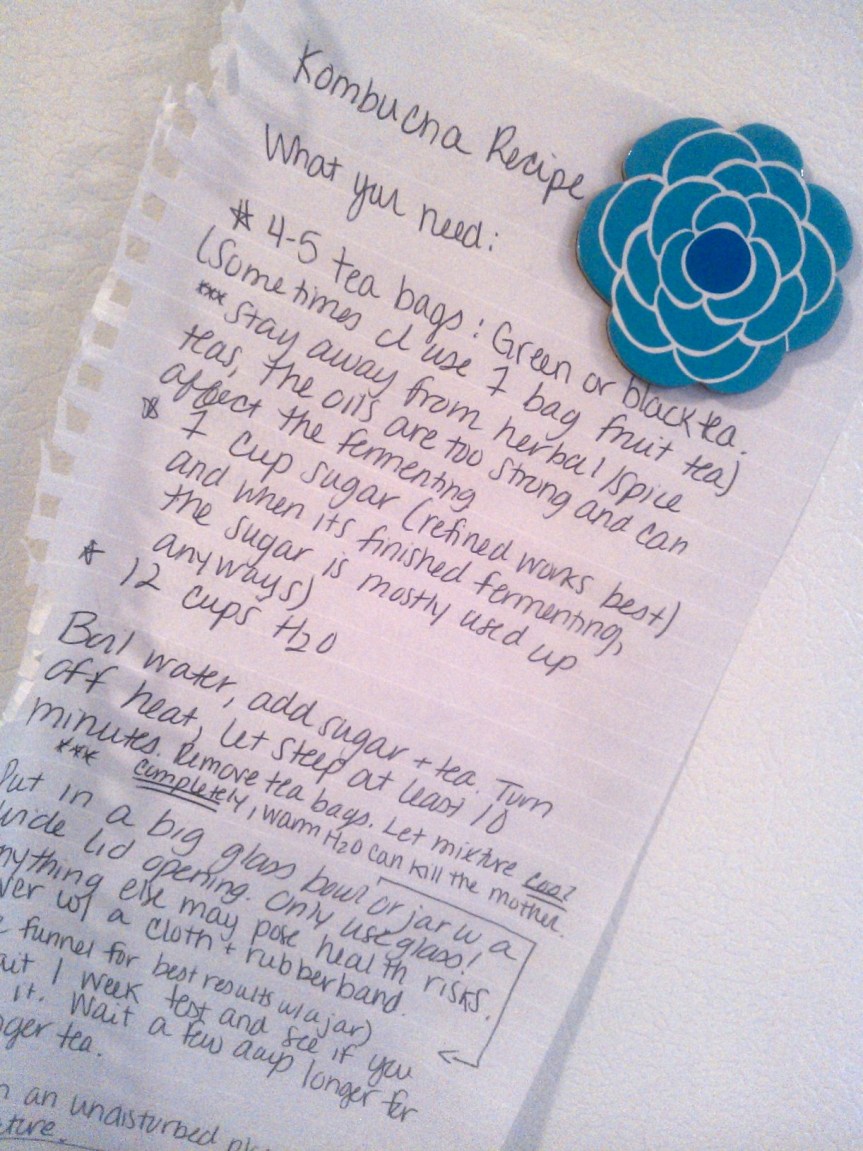 Kombucha Recipe
What you need:
* 4-5 tea bags: Green or black tea.
(Sometimes I use 1 bag fruit tea)
*** Stay away from herbal/spice
teas, the oils are too strong and can
affect the fermenting
* 1 cup sugar (refined works best)
and when its finished fermenting,
the sugar is mostly used up
anyways)
* 12 cups H2O
Boil water, add sugar + tea. Turn
off heat, let steep at least 10
minutes. Remove tea bags. Let mixture cool
*** completely, warm H2O can kill the mother.
Put in a big glass bowl or jar w a
wide lid opening. Only use glass!
nything else may pose health risks.
ver w/ a cloth + rubberband.
funnel for best results w/ a jar)
1 week test and see if you
it. Wait a few longer for
nger tea.
n an undisturbed
ture.